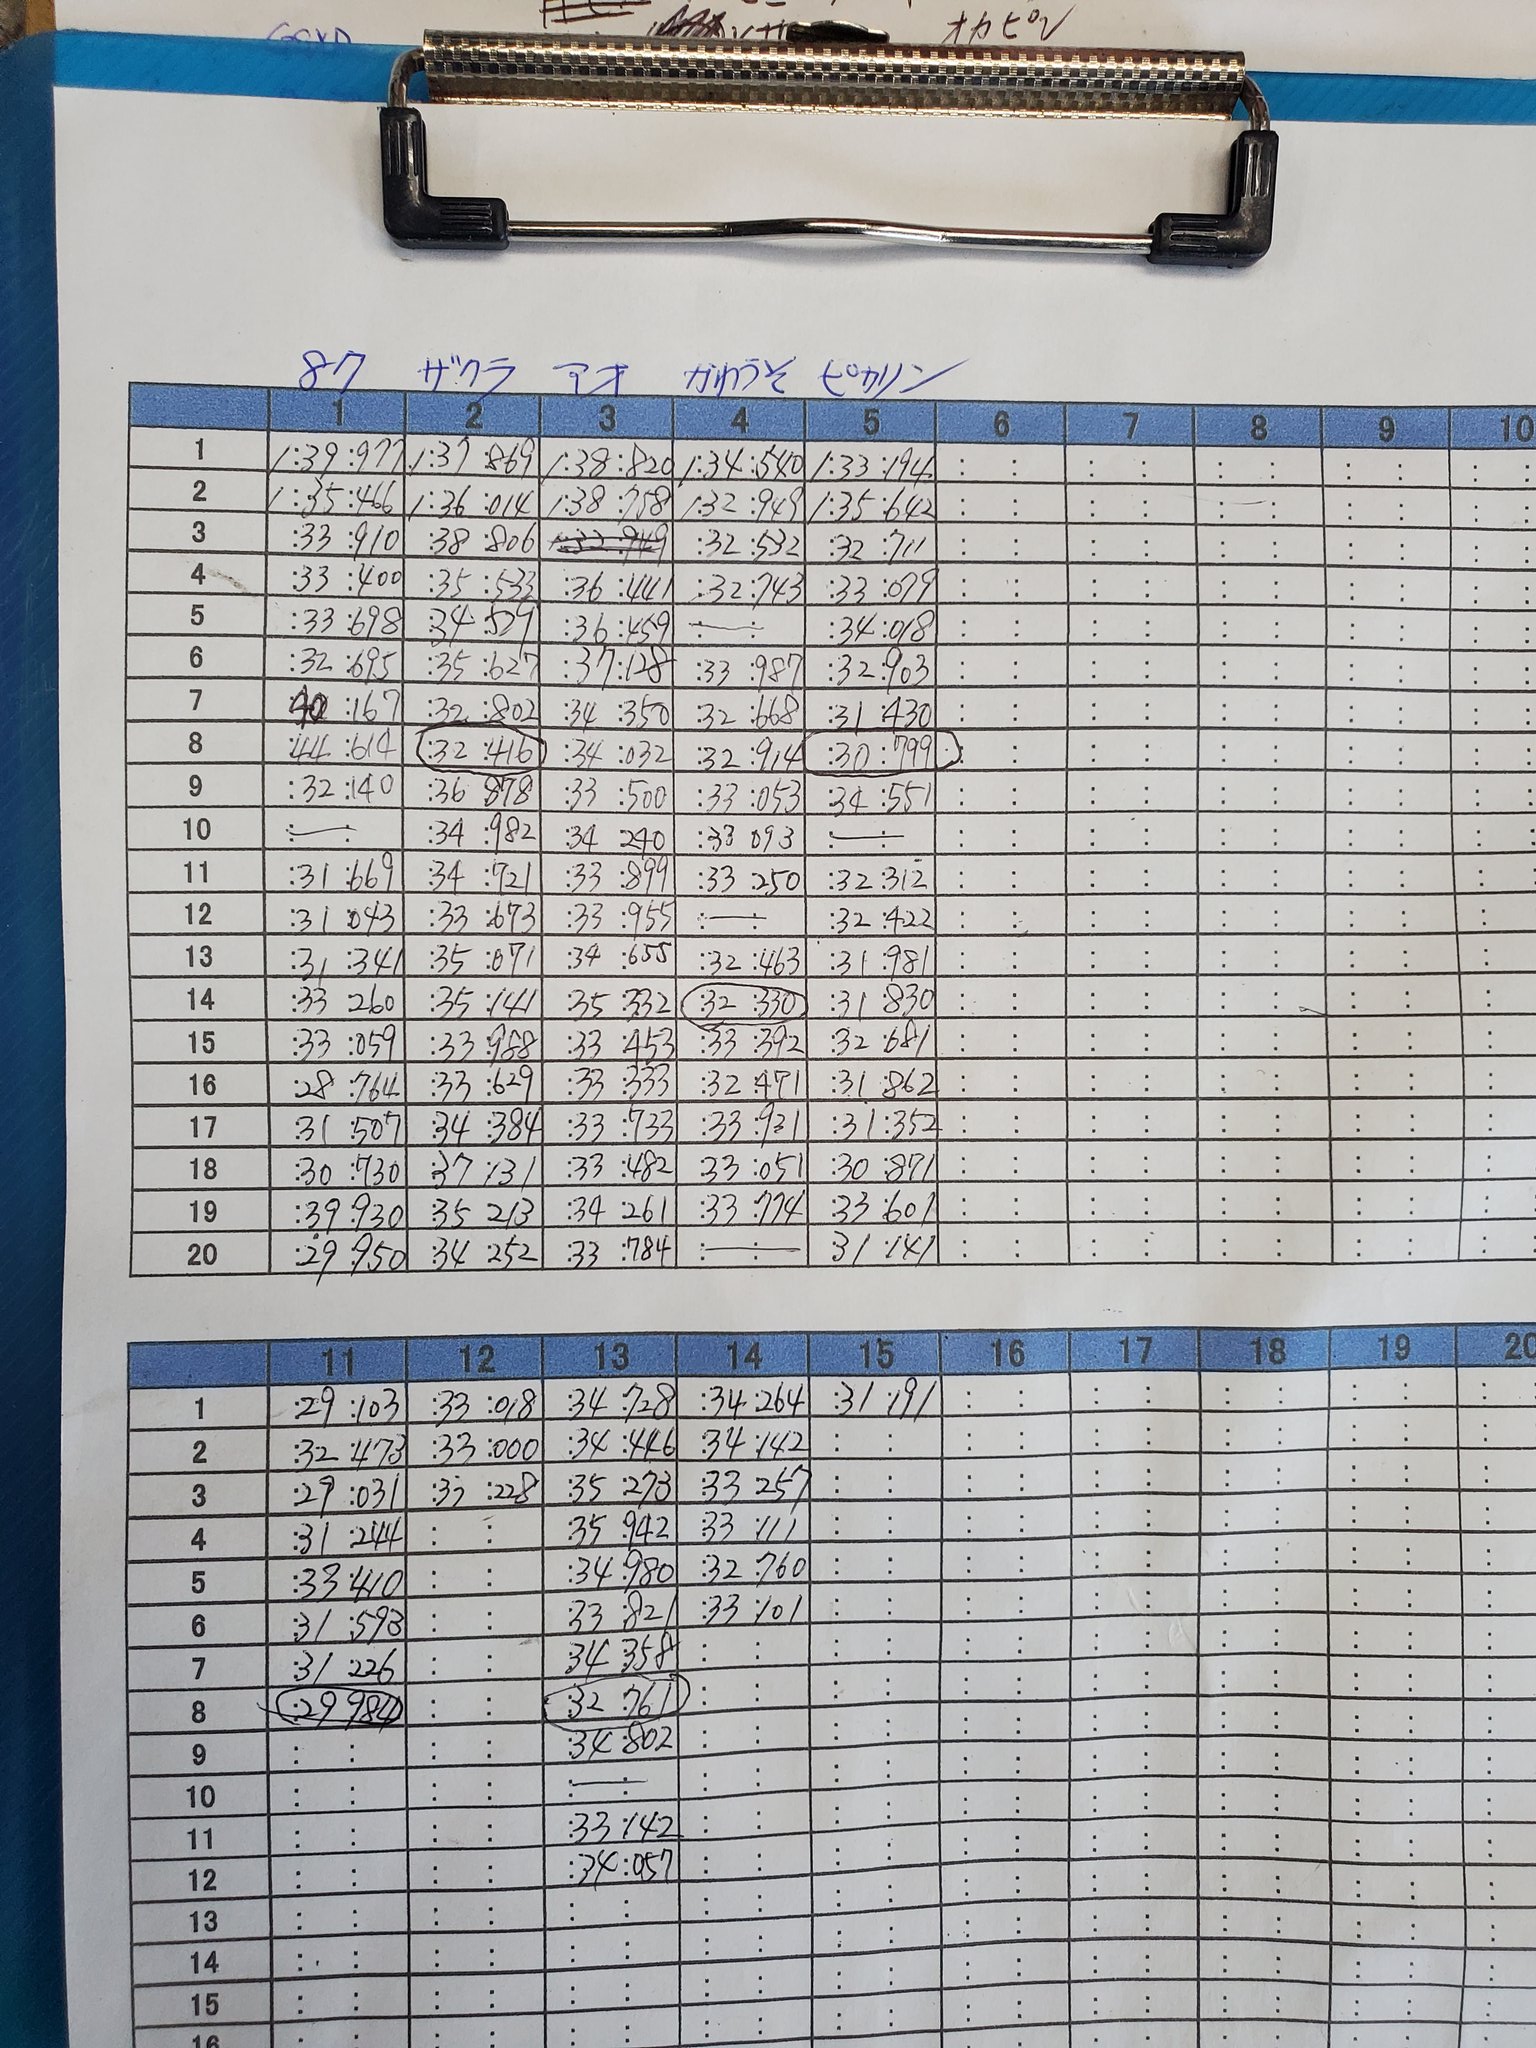 オカピン
8ク ザクラ アオ かわうそ ピカリン
1 2 3 4 5 6 7 8 9 10
1 1:39:977 1:37:869 1:38:820 1:34:540 1:33:194 : : : : : : : : : :
2 1:35:466 1:36:014 1:38:758 1:32:949 1:35:642 : : : : : : : : : :
3 :33:910 :38:806 :32:532 :32:711 : : : : : : : : : :
4 :33:400 :35:533 :36:441 :32:743 :33:079 : : : : : : : : : :
5 :33:698 :34:529 :36:459 :—: :34:018 : : : : : : : : : :
6 :32:695 :35:627 :37:128 :33:987 :32:903 : : : : : : : : : :
7 :40:167 :32:802 :34:350 :32:668 :31:430 : : : : : : : : : :
8 :44:614 :32:416 :34:032 :32:914 :30:799 : : : : : : : : : :
9 :32:140 :36:878 :33:500 :33:053 :34:551 : : : : : : : : : :
10 :—: :34:982 :34:240 :33:093 :—: : : : : : : : : : :
11 :31:669 :34:721 :33:899 :33:250 :32:312 : : : : : : : : : :
12 :31:043 :33:673 :33:955 :—: :32:422 : : : : : : : : : :
13 :31:341 :35:071 :34:655 :32:463 :31:981 : : : : : : : : : :
14 :33:260 :35:141 :35:332 :32:330 :31:830 : : : : : : : : : :
15 :33:059 :33:988 :33:453 :33:392 :32:681 : : : : : : : : : :
16 :28:764 :33:629 :33:333 :32:471 :31:862 : : : : : : : : : :
17 :31:507 :34:384 :33:733 :33:931 :31:352 : : : : : : : : : :
18 :30:730 :37:131 :33:482 :33:051 :30:871 : : : : : : : : : :
19 :39:930 :35:213 :34:261 :33:774 :33:601 : : : : : : : : : :
20 :29:950 :34:252 :33:784 :—: :31:141 : : : : : : : : : :
11 12 13 14 15 16 17 18 19 20
1 :29:103 :33:018 :34:728 :34:264 :31:191 : : : : : : : : : :
2 :32:473 :33:000 :34:446 :34:142 : : : : : : : : : : : :
3 :29:031 :33:228 :35:273 :33:257 : : : : : : : : : : : :
4 :31:244 : : :35:942 :33:111 : : : : : : : : : : : :
5 :33:410 : : :34:980 :32:760 : : : : : : : : : : : :
6 :31:593 : : :33:821 :33:101 : : : : : : : : : : : :
7 :31:226 : : :34:358 : : : : : : : : : : : : : :
8 :29:984 : : :32:761 : : : : : : : : : : : : : :
9 : : : : :34:802 : : : : : : : : : : : : : :
10 : : : : :—: : : : : : : : : : : : : : :
11 : : : : :33:142 : : : : : : : : : : : : : :
12 : : : : :34:057 : : : : : : : : : : : : : :
13 : : : : : : : : : : : : : : : : : : : :
14 : : : : : : : : : : : : : : : : : : : :
15 : : : : : : : : : : : : : : : : : : : :
16